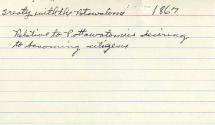 Treaty with the Potawatomi 1867
Relative to Pottawatomies desiring
to becoming citizens